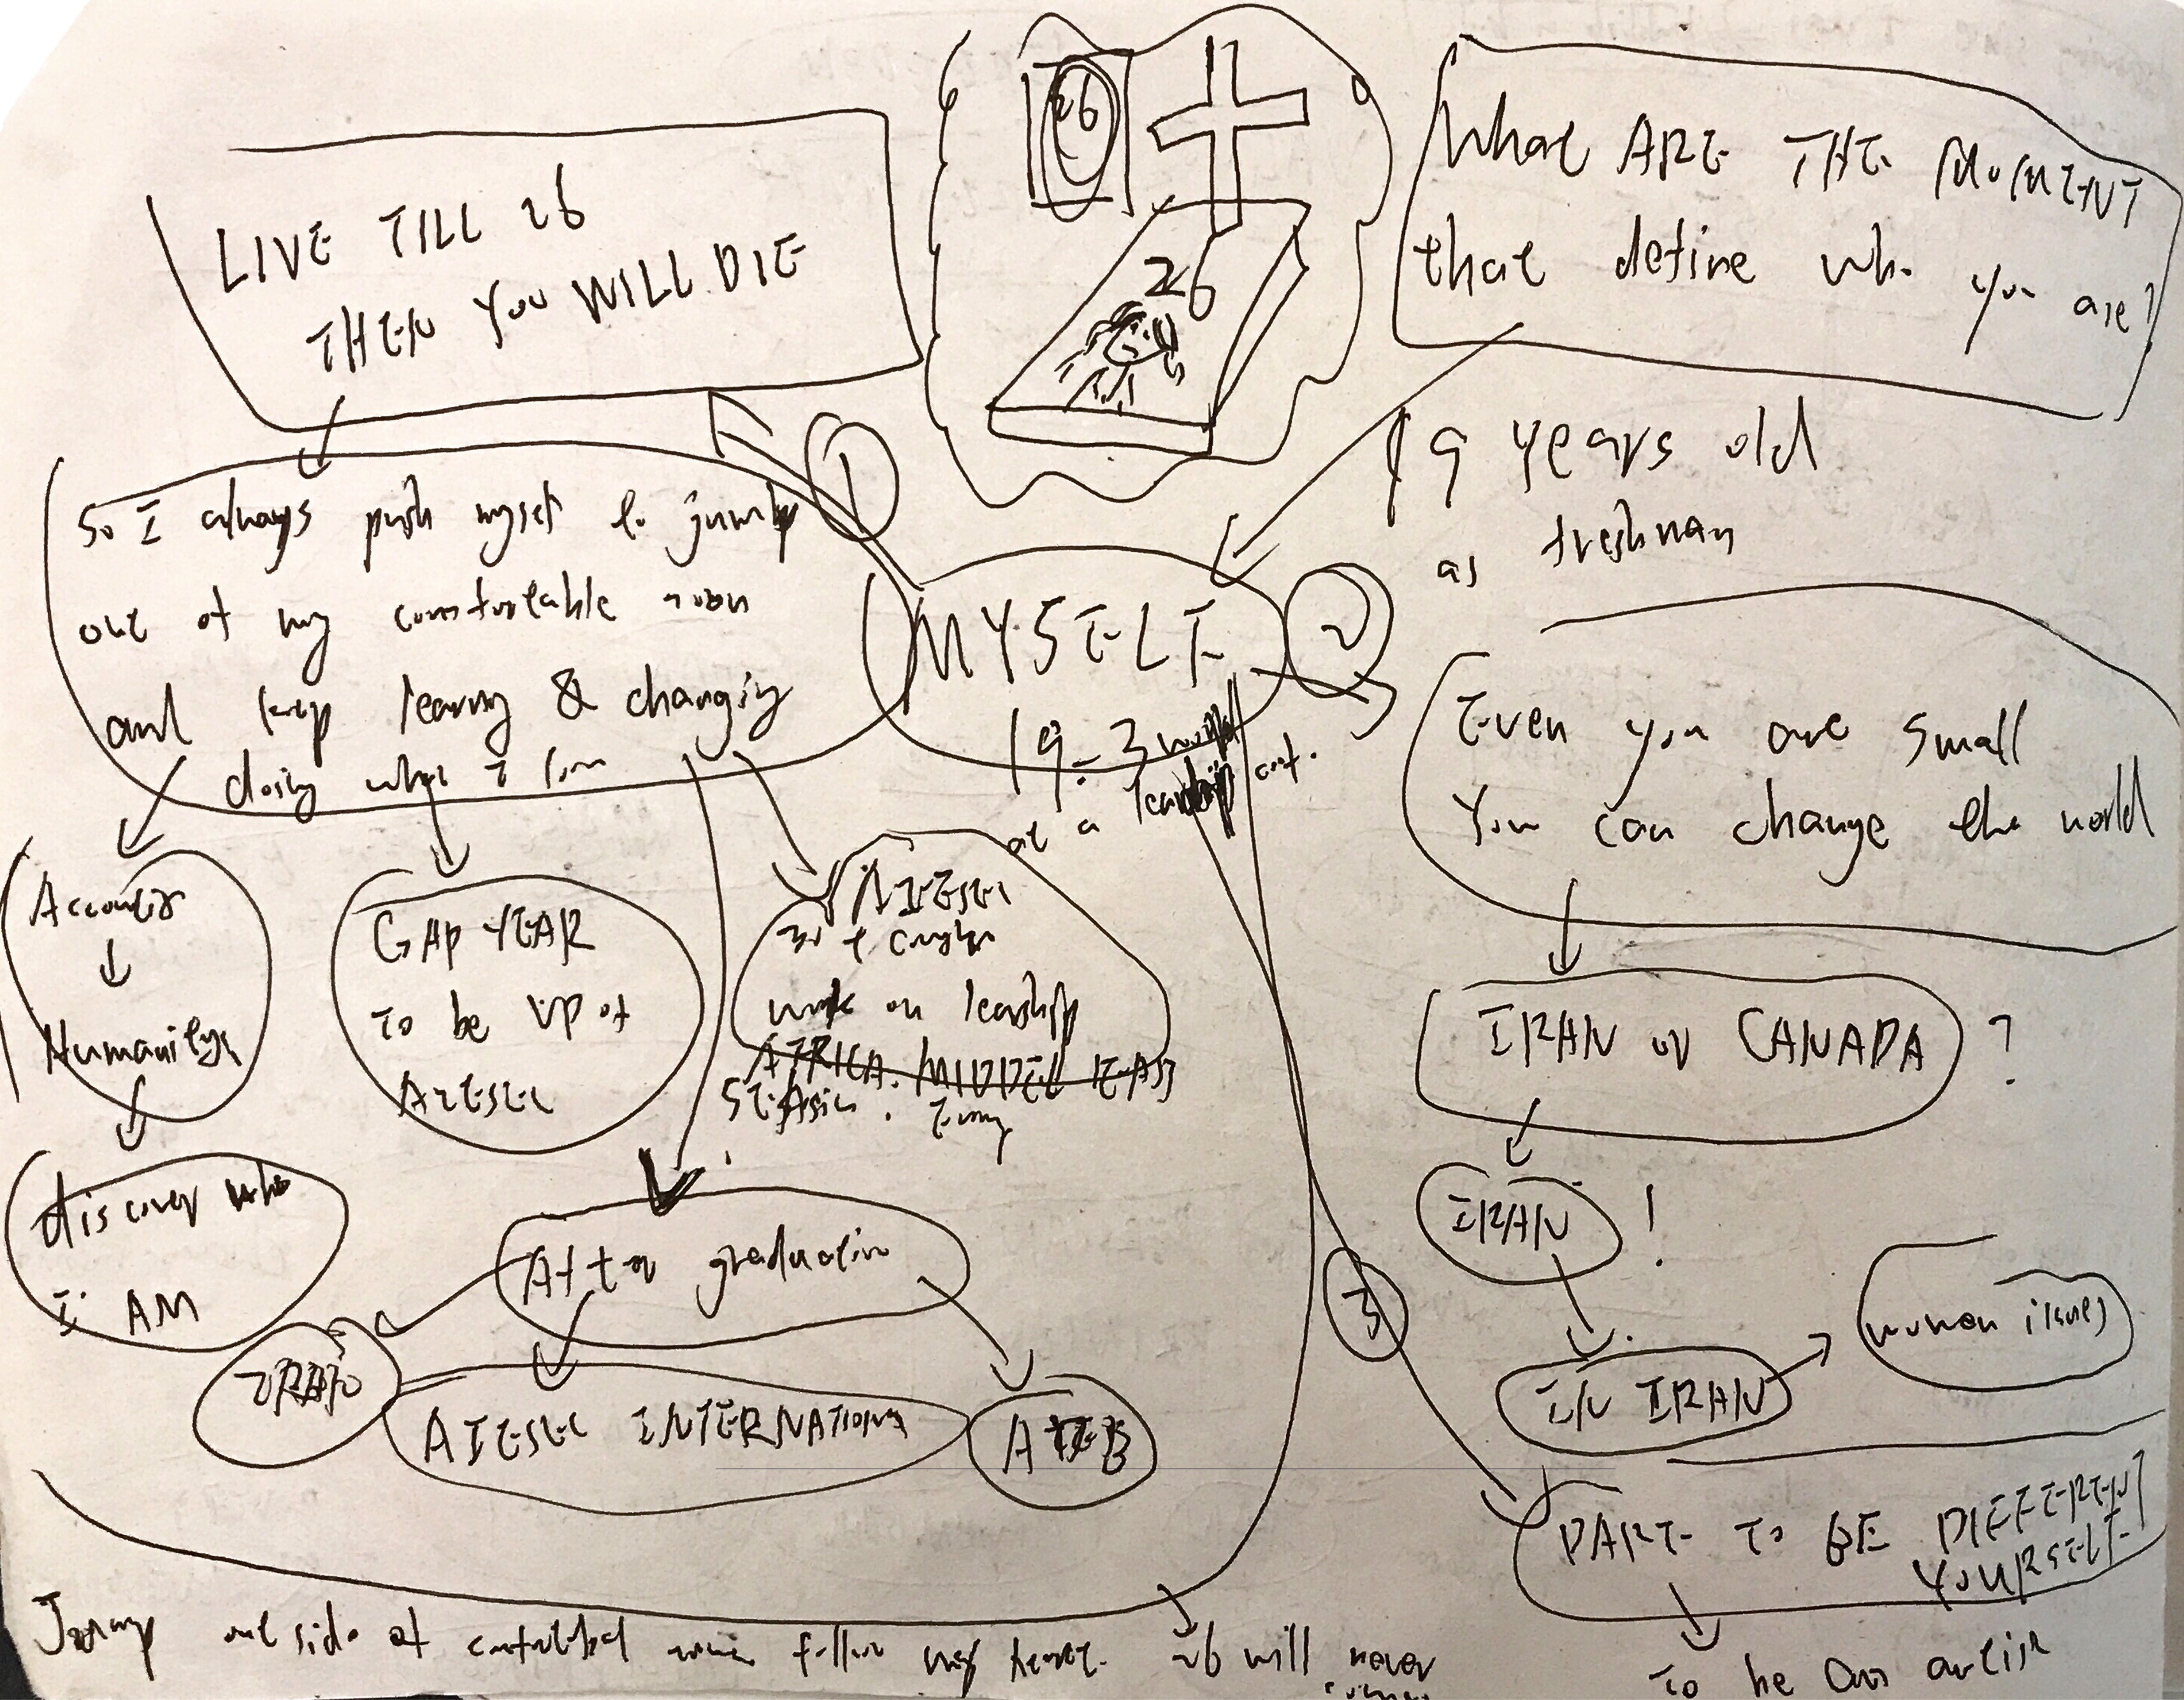 26
What ARE THE MOMENT
that define who you are?
LIVE TILL 26
THEN YOU WILL DIE
26
19 years old
as freshman
1
So I always push myself to jump
out of my comfortable
and keep learning & changing
doing what I
MYSELF
2
19 - 3
at a leadership conf.
Even you are small
You can change the world
Accounting
↓
Humanity
GAP YEAR
To be VP of
AIESEC
AIESEC
30 +
work on leaship
AFRICA. MIDDEL EAST
SE Asia.
IRAN or CANADA ?
discover who
I AM
IRAN !
After graduation
3
women issues
IRAN
AIESEC INTERNATIONAL
IN IRAN
DARE TO BE DIFFERENT
YOURSELF
out side of follow my heart. 26 will never
To be an artist